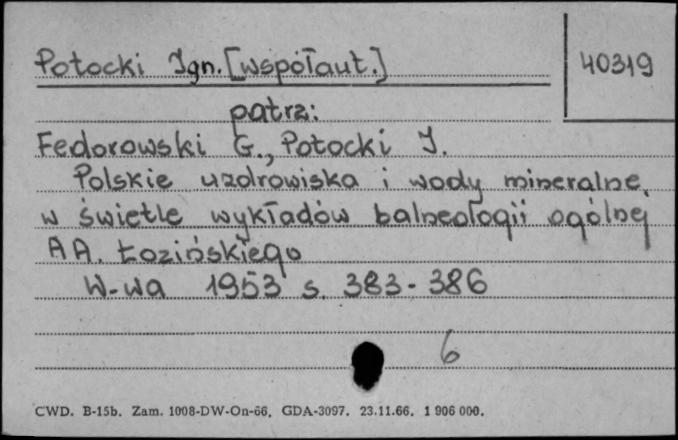 Potocki Ign. [współaut.]
40319
patrz:
Fedorowski G., Potocki J.
Polskie uzdrowiska i wody mineralne
w świetle wykładów balneologii ogólnej
A.A. Łozińskiego
W-wa 1953 s. 383-386
6
CWD. B-15b. Zam. 1008-DW-On-66. GDA-3097. 23.11.66. 1 906 000.